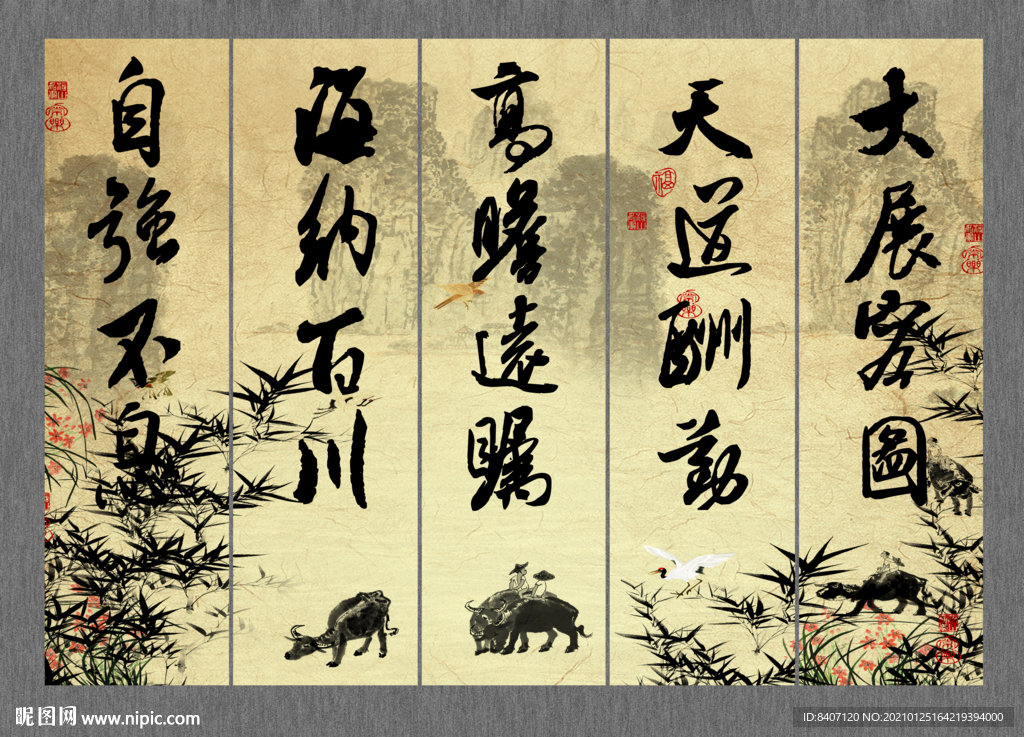 大展宏圖
天道酬勤
高瞻遠矚
海納百川
自強不息
昵图网 www.nipic.com
ID:8407120 NO:20210125164219394000